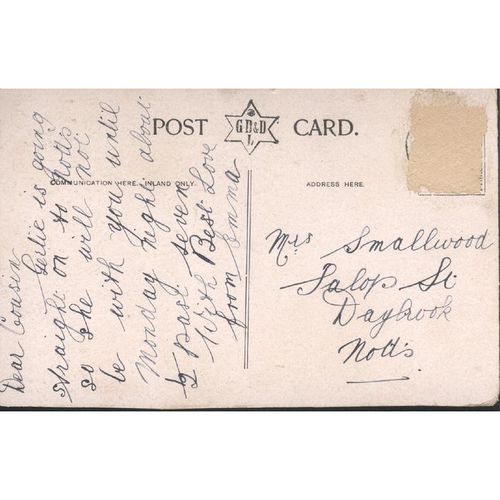 POST CARD.
G.D.&D.
L
COMMUNICATION HERE, INLAND ONLY.
ADDRESS HERE.
Dear Cousin
Gertie is going
straight on to Notts
so she will not
be with you until
Monday night about
½ past seven
With Best Love
from Emma
Mrs Smallwood
Salop St
Daybrook
Notts